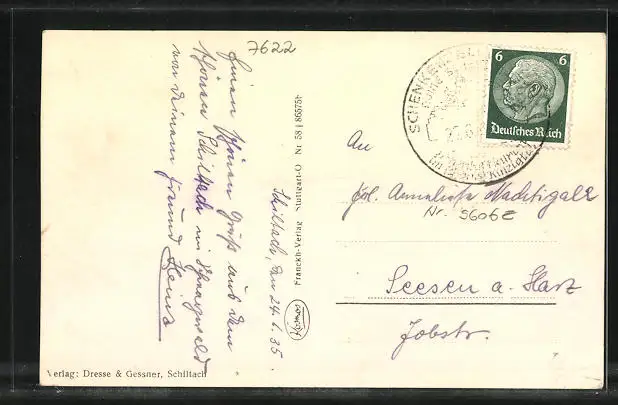 7622
Einen schönen Gruß aus dem
schönen Schiltach im Schwarzwald
von deinem Freund Heinz
Schiltach, den 24.6.35.
Franckh-Verlag Stuttgart-O Nr 58 | 86575b
Kosmos
Verlag: Dresse & Gessner, Schiltach
SCHENKENZELL
6 6
Deutsches Reich
An
Frl. Annaliese Nachtigall
Nr. 5606E
Seesen a. Harz
Jobstr.